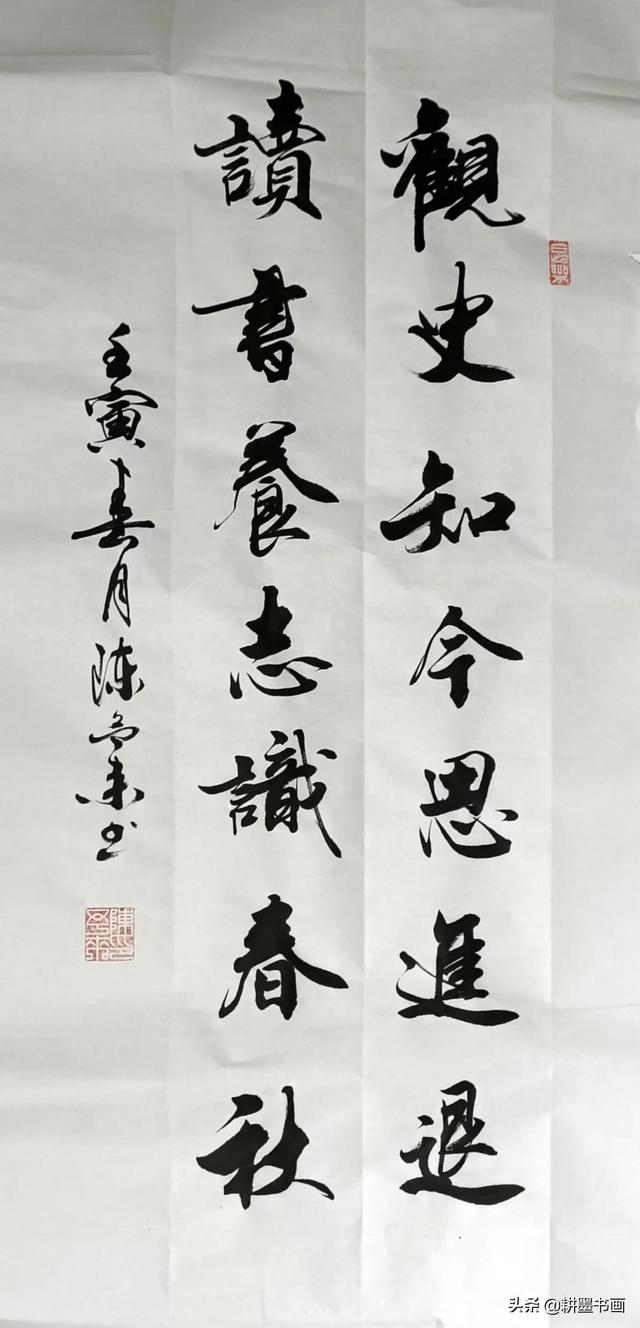 觀史知今思進退
讀書養志識春秋
壬寅春月陈
书
头条 @耕墨书画